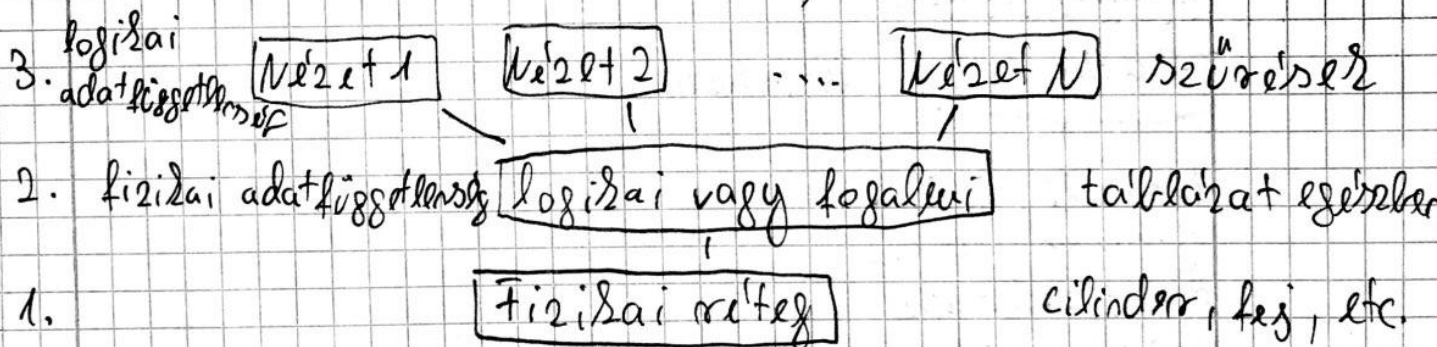 3. logikai adatfüggetlenség Nézet 1 Nézet 2 .... Nézet N szűrések
2. fizikai adatfüggetlenség logikai vagy fogalmi táblázat egészben
1. Fizikai réteg cilinder, fej, etc.